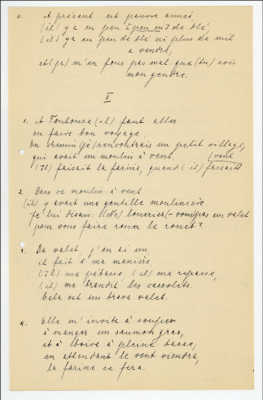 5. A présent est pauvre année
(il) y a un peu (peu ou) de blé,
(il) y a un peu de blé ni plus de mil
a vendre,
et (je) m'en fous pas mal que (tu) sois
mon gendre.
II
1. A Toulouse (il) faut aller
en faire bon voyage,
En chemin (je) rencontrais un petit village,
qui avait un moulin à vent
(Il) faisait la farine, quand (il)
2. Dans ce moulin à vent
(il) y avait une gentille moulinière
je lui disais: voudriez-vous pas un valet
pour vous faire tourner la roue?
3. Du valet, j'en ai un
il fait à ma manière
(Il) me (il) me
(il) me
Cela est un brave valet.
4. Elle m'invite à souper
à manger un saumon gras,
et à boire à pleine tasse,
en attendant le vent viendra,
la farine se fera.